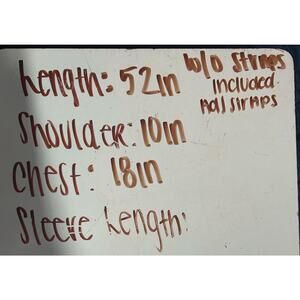 Length: 52in
w/o Straps
included.
Adj straps
Shoulder: 10in
Chest: 18in
Sleeve Length: